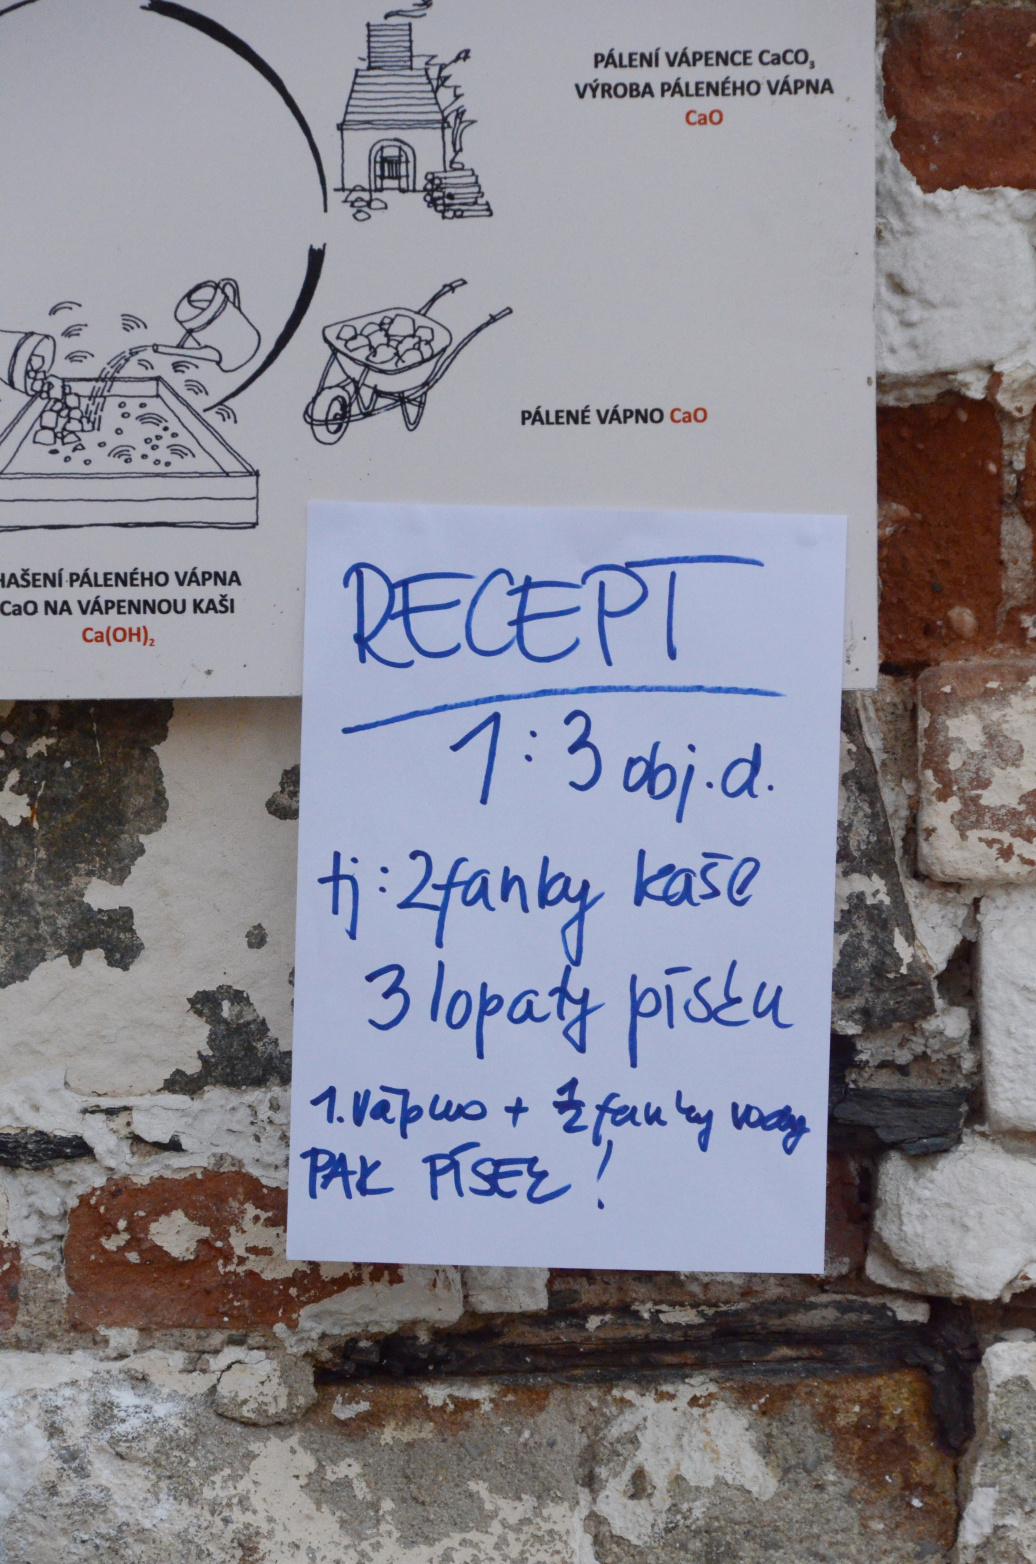 PÁLENÍ VÁPENCE CaCO₃
VÝROBA PÁLENÉHO VÁPNA
CaO
PÁLENÉ VÁPNO CaO
HAŠENÍ PÁLENÉHO VÁPNA
CaO NA VÁPENNOU KAŠI
Ca(OH)₂
RECEPT
1:3 obj.d.
tj:2fanky kaše
3 lopaty písku
1. vápno + 1/2 fanky vody
PAK PÍSEK!